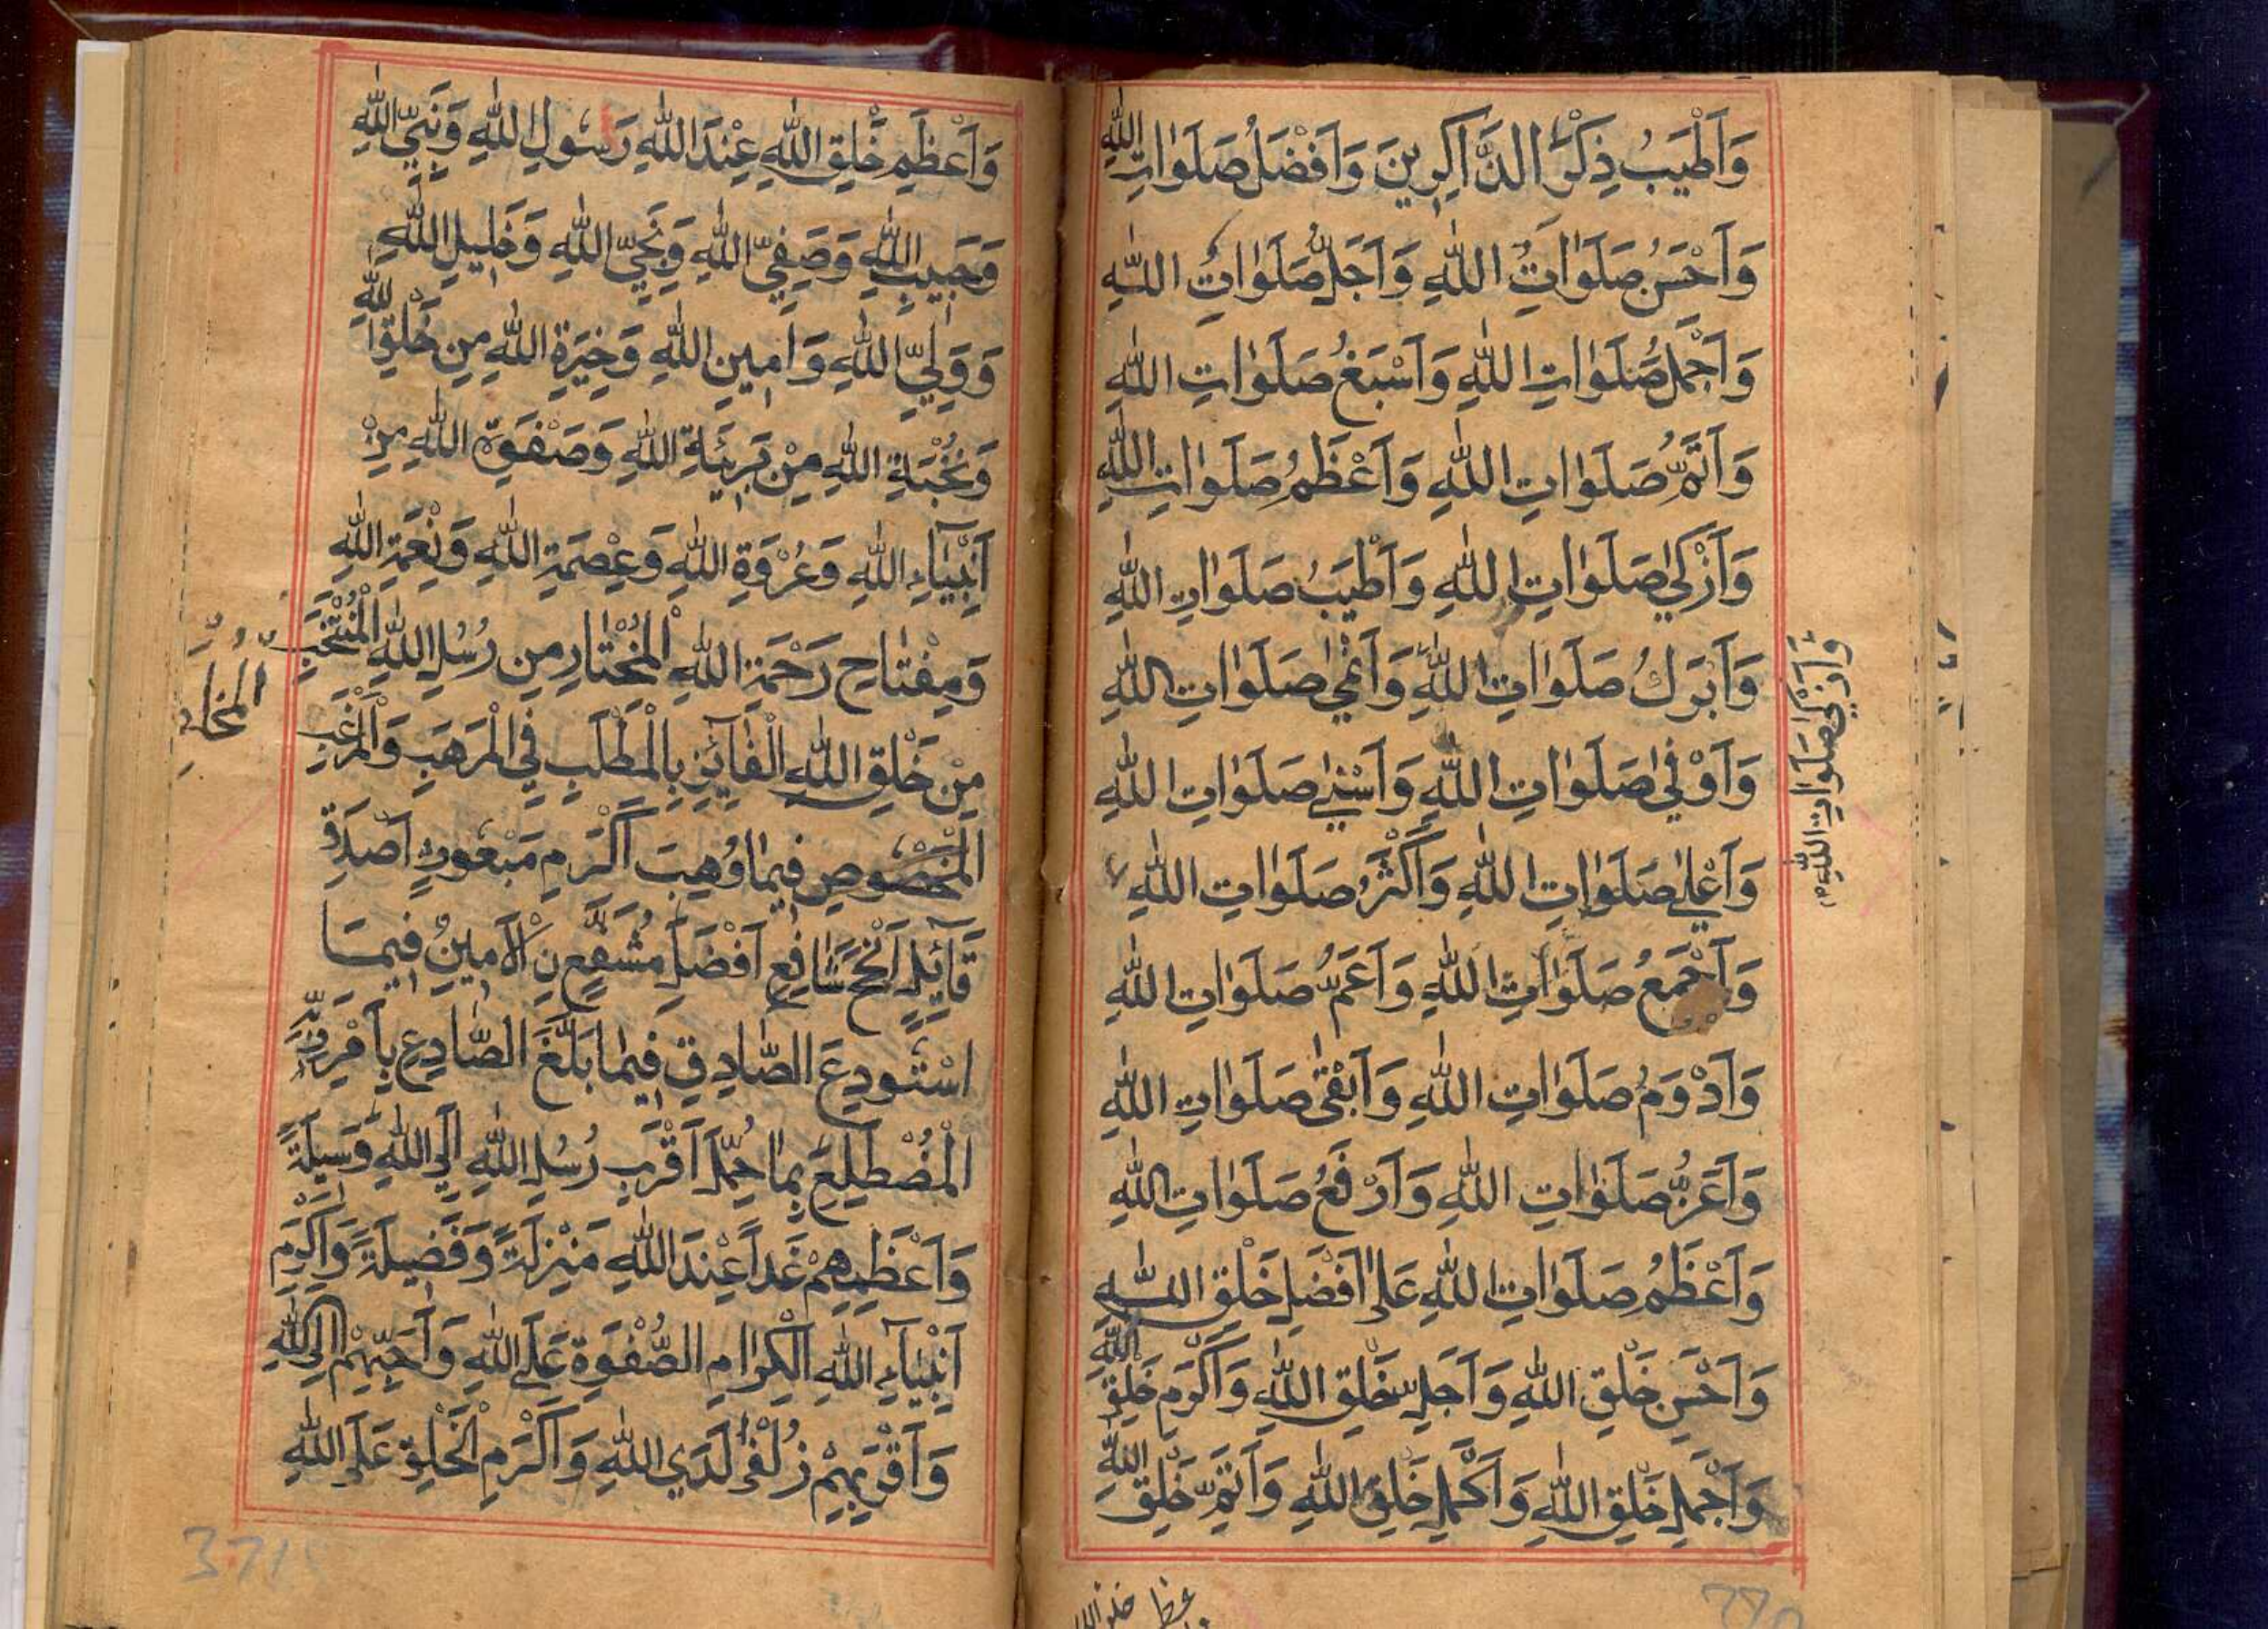 وَاَطْيَبُ ذِكْرِ الذَّاكِرِينَ وَاَفْضَلُ صَلَوَاتِ اللّٰهِ
وَاَحْسَنُ صَلَوَاتُِ اللّٰهِ وَاَجَلُّ صَلَوَاتُِ اللّٰهِ
وَاَجْمَلُ صَلَوَاتِ اللّٰهِ وَاَسْبَغُ صَلَوَاتِ اللّٰهِ
وَاَتَمُّ صَلَوَاتِ اللّٰهِ وَاَعْظَمُ صَلَوَاتِ اللّٰهِ
وَاَزْكٰى صَلَوَاتِ اللّٰهِ وَاَطْيَبُ صَلَوَاتِ اللّٰهِ
وَاَبْرَكُ صَلَوَاتِ اللّٰهِ وَاَنْمٰى صَلَوَاتِ اللّٰهِ
وَاَوْفٰى صَلَوَاتِ اللّٰهِ وَاَسْنٰى صَلَوَاتِ اللّٰهِ
وَاَعْلٰى صَلَوَاتِ اللّٰهِ وَاَكْثَرُ صَلَوَاتِ اللّٰهِ
وَاَجْمَعُ صَلَوَاتِ اللّٰهِ وَاَعَمُّ صَلَوَاتِ اللّٰهِ
وَاَدْوَمُ صَلَوَاتِ اللّٰهِ وَاَبْقٰى صَلَوَاتِ اللّٰهِ
وَاَعَزُّ صَلَوَاتِ اللّٰهِ وَاَرْفَعُ صَلَوَاتِ اللّٰهِ
وَاَعْظَمُ صَلَوَاتِ اللّٰهِ عَلٰى اَفْضَلِ خَلْقِ اللّٰهِ
وَاَحْسَنِ خَلْقِ اللّٰهِ وَاَجَلِّ خَلْقِ اللّٰهِ وَاَكْرَمِ خَلْقِ اللّٰهِ
وَاَجْمَلِ خَلْقِ اللّٰهِ وَاَكْمَلِ خَلْقِ اللّٰهِ وَاَتَمِّ خَلْقِ اللّٰهِ
وَاَزْكٰى صَلَوَاتِ اللّٰهِ
وَاَعْظَمِ خَلْقِ اللّٰهِ عِنْدَ اللّٰهِ رَسُولِ اللّٰهِ وَنَبِيِّ اللّٰهِ
وَحَبِيبِ اللّٰهِ وَصَفِيِّ اللّٰهِ وَنَجِيِّ اللّٰهِ وَخَلِيلِ اللّٰهِ
وَوَلِيِّ اللّٰهِ وَاَمِينِ اللّٰهِ وَخِيَرَةِ اللّٰهِ مِنْ خَلْقِ اللّٰهِ
وَنُخْبَةِ اللّٰهِ مِنْ بَرِيَّةِ اللّٰهِ وَصَفْوَةِ اللّٰهِ مِنْ
اَنْبِيَآءِ اللّٰهِ وَعُرْوَةِ اللّٰهِ وَعِصْمَةِ اللّٰهِ وَنِعْمَةِ اللّٰهِ
وَمِفْتَاحِ رَحْمَةِ اللّٰهِ الْمُخْتَارِ مِنْ رُسُلِ اللّٰهِ الْمُنْتَخَبِ
مِنْ خَلْقِ اللّٰهِ الْفَآئِزِ بِالْمَطْلَبِ فِي الْمَرْهَبِ وَالْمَرْغَبِ
الْمَخْصُوصِ فِيمَا وُهِبَ اَكْرَمِ مَبْعُوثٍ اَصْدَقِ
قَآئِلٍ اَنْجَحِ شَافِعٍ اَفْضَلِ مُشَفَّعٍ نِ الْاَمِينِ فِيمَا
اسْتُودِعَ الصَّادِقِ فِيمَا بَلَّغَ الصَّادِعِ بِاَمْرِ رَبِّهٖ
الْمُضْطَلِعِ بِمَا حُمِّلَ اَقْرَبِ رُسُلِ اللّٰهِ اِلَى اللّٰهِ وَسِيلَةً
وَاَعْظَمِهِمْ غَداً عِنْدَ اللّٰهِ مَنْزِلَةً وَفَضِيلَةً وَاَكْرَمِ
اَنْبِيَآءِ اللّٰهِ الْكِرَامِ الصَّفْوَةِ عَلَى اللّٰهِ وَاَحَبِّهِمْ اِلَى اللّٰهِ
وَاَقْرَبِهِمْ زُلْفٰى لَدَي اللّٰهِ وَاَكْرَمِ الْخَلْقِ عَلَى اللّٰهِ